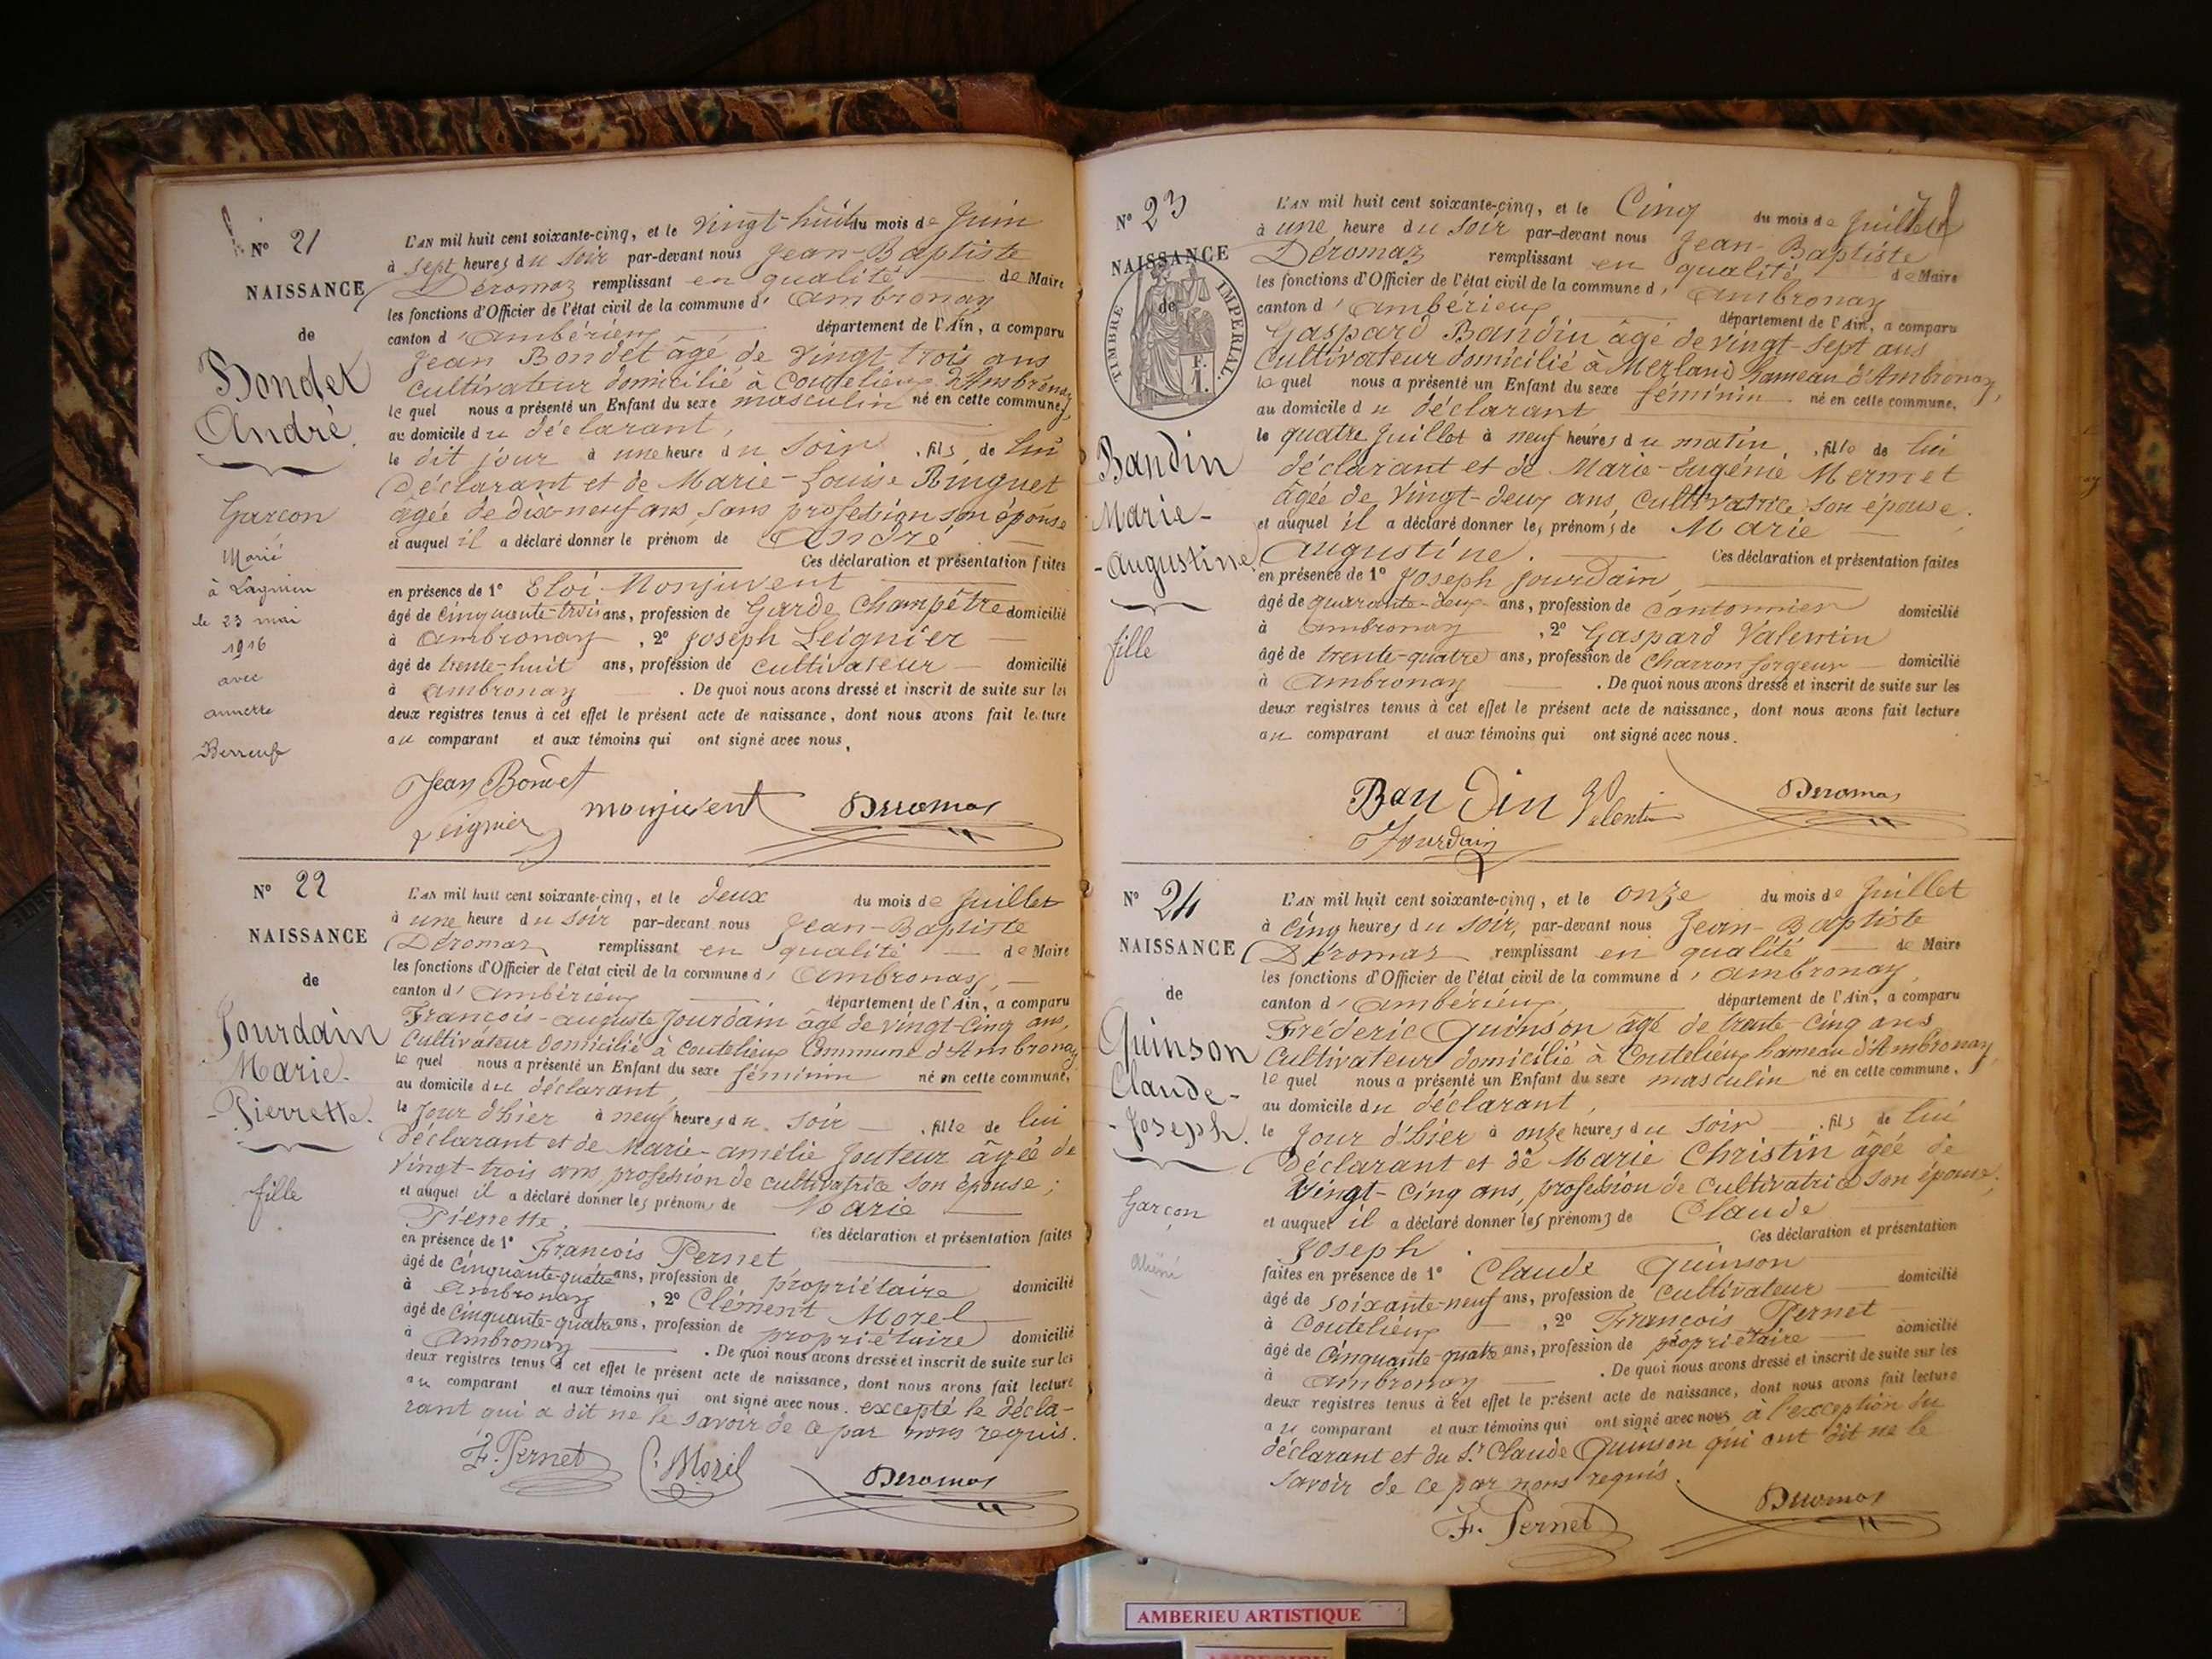 N° 21
NAISSANCE
de
Bondet
André.
Garçon
Marié
à Lagnieu
le 23 mai
1916
avec
annette
L'AN mil huit cent soixante-cinq, et le vingt-huit du mois de Juin
à sept heures du soir par-devant nous Jean-Baptiste
Déromaz remplissant en qualité de Maire
les fonctions d'Officier de l'état civil de la commune d' Ambronay
canton d' Ambérieux département de l'Ain, a comparu
Jean Bondet âgé de vingt-trois ans
cultivateur domicilié à Coutelieux d'Ambronay,
lequel nous a présenté un Enfant du sexe masculin né en cette commune,
au domicile du déclarant,
le dit jour à une heure du soir , fils de lui
Déclarant et de Marie-Louise Ringuet
âgée de dix-neuf ans, sans profession son épouse
et auquel il a déclaré donner le prénom de André
Ces déclaration et présentation faites
en présence de 1° Eloi Monjuvent
âgé de cinquante-trois ans, profession de Garde Champêtre domicilié
à Ambronay , 2° Joseph Leignier
âgé de trente-huit ans, profession de cultivateur domicilié
à Ambronay . De quoi nous avons dressé et inscrit de suite sur les
deux registres tenus à cet effet le présent acte de naissance, dont nous avons fait lecture
au comparant et aux témoins qui ont signé avec nous.
Jean Bondet
Leignier monjuvent Deromas
N° 22
NAISSANCE
de
Jourdain
Marie-
-Pierrette.
fille
L'AN mil huit cent soixante-cinq, et le deux du mois de Juillet
à une heure du soir par-devant nous Jean-Baptiste
Déromaz remplissant en qualité de Maire
les fonctions d'Officier de l'état civil de la commune d' Ambronay,
canton d' Ambérieux département de l'Ain, a comparu
François-auguste Jourdain âgé de vingt-cinq ans,
cultivateur domicilié à coutelieux Commune d'Ambronay
lequel nous a présenté un Enfant du sexe féminin né en cette commune,
au domicile du déclarant,
le jour d'hier à neuf heures du soir , fille de lui
déclarant et de Marie-amélie Jouteur âgée de
vingt-trois ans profession de cultivatrice son épouse ;
et auquel il a déclaré donner les prénoms de Marie
Pierrette. Ces déclaration et présentation faites
en présence de 1° François Pernet
âgé de cinquante-quatre ans, profession de propriétaire domicilié
à Ambronay , 2° Clément Morel
âgé de cinquante-quatre ans, profession de propriétaire domicilié
à Ambronay . De quoi nous avons dressé et inscrit de suite sur les
deux registres tenus à cet effet le présent acte de naissance, dont nous avons fait lecture
au comparant et aux témoins qui ont signé avec nous. excepté le décla-
rant qui a dit ne le savoir de ce par nous requis.
F. Pernet C. Morel Deromas
N° 23
NAISSANCE
de
TIMBRE IMPERIAL.
F.
1.
Baudin
Marie-
-Augustine.
fille
L'AN mil huit cent soixante-cinq, et le Cinq du mois de Juillet
à une heure du soir par-devant nous Jean-Baptiste
Déromaz remplissant en qualité de Maire
les fonctions d'Officier de l'état civil de la commune d' Ambronay
canton d' Ambérieux département de l'Ain, a comparu
Gaspard Baudin âgé de vingt-sept ans
Cultivateur domicilié à Merland hameau d'Ambronay,
lequel nous a présenté un Enfant du sexe féminin né en cette commune,
au domicile du déclarant
le quatre Juillet à neuf heures du matin , fille de lui
déclarant et de Marie-Eugénie Mermet
âgée de vingt-deux ans, cultivatrice son épouse.
et auquel il a déclaré donner les prénoms de Marie
Augustine. Ces déclaration et présentation faites
en présence de 1° Joseph Jourdain
âgé de quarante-deux ans, profession de Cantonnier domicilié
à Ambronay , 2° Gaspard Valentin
âgé de trente-quatre ans, profession de charron forgeur domicilié
à Ambronay . De quoi nous avons dressé et inscrit de suite sur les
deux registres tenus à cet effet le présent acte de naissance, dont nous avons fait lecture
au comparant et aux témoins qui ont signé avec nous.
Baudin Valentin Deromas
Jourdain
N° 24
NAISSANCE
de
Quinson
Claude-
-Joseph.
Garçon
L'AN mil huit cent soixante-cinq, et le onze du mois de Juillet
à cinq heures du soir, par-devant nous Jean-Baptiste
Déromaz remplissant en qualité de Maire
les fonctions d'Officier de l'état civil de la commune d' Ambronay
canton d' Ambérieux, département de l'Ain, a comparu
Fréderic Quinson âgé de trente-cinq ans
Cultivateur domicilié à Coutelieux hameau d'Ambronay,
lequel nous a présenté un Enfant du sexe masculin né en cette commune,
au domicile du déclarant,
le jour d'hier à onze heures du soir , fils de lui
Déclarant et de Marie Christin âgée de
vingt-cinq ans, profession de cultivatrice son épouse;
et auquel il a déclaré donner les prénoms de Claude
Joseph. Ces déclaration et présentation
faites en présence de 1° Claude Quinson
âgé de soixante-neuf ans, profession de cultivateur domicilié
à Coutelieux , 2° François Pernet
âgé de cinquante-quatre ans, profession de propriétaire domicilié
à Ambronay . De quoi nous avons dressé et inscrit de suite sur les
deux registres tenus à cet effet le présent acte de naissance, dont nous avons fait lecture
au comparant et aux témoins qui ont signé avec nous à l'exception du
déclarant et du Sr Claude Quinson qui ont dit ne le
savoir de ce par nous requis.
F. Pernet Deromas
AMBERIEU ARTISTIQUE